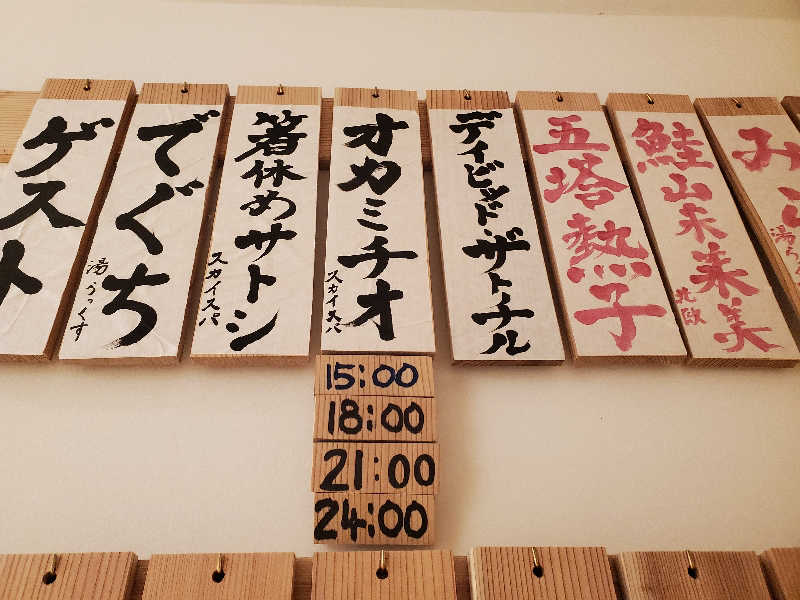 ゲスト
でぐち
湯らっくす
箸休めサトシ
スカイスパ
オカミチオ
スカイスパ
15:00
18:00
21:00
24:00
デイビッド・ザトチル
五塔熱子
鮭山未菜美
北欧
み
湯ら